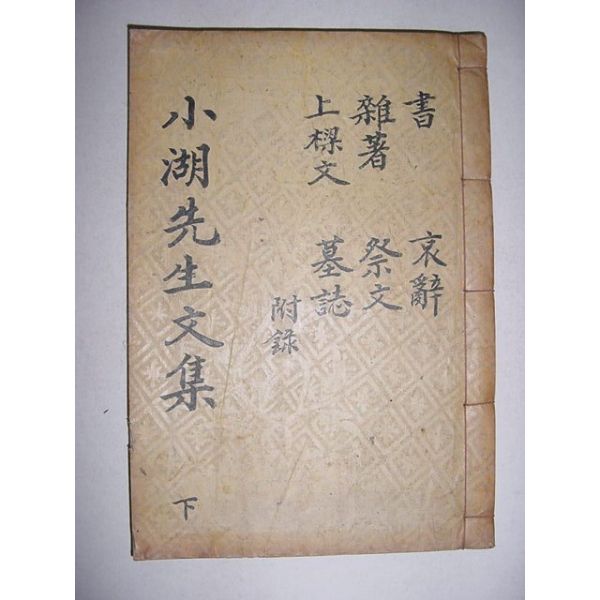 書
雜著
上樑文
哀辭
祭文
墓誌
附錄
小湖先生文集
下